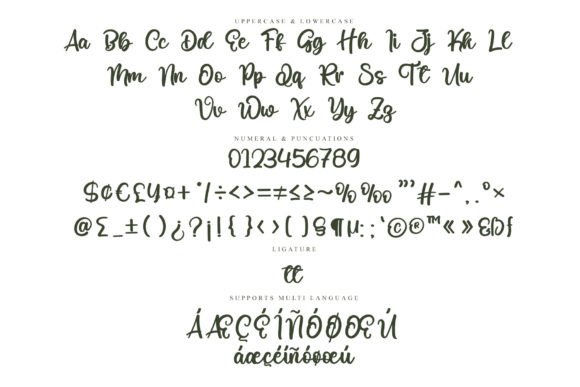 UPPERCASE & LOWERCASE
Aa Bb Cc Dd Ee Ff Gg Hh Ii Jj Kk Ll
Mm Nn Oo Pp Qq Rr Ss Tt Uu
Vv Ww Xx Yy Zz
NUMERAL & PUNCUATIONS
0123456789
$¢€£¥¤+⁄/÷<>=≠≤≥~%‰’”#-^,.°×
@Σ_±()¿?¡!{}‹›[]§¶µ:;‘©®™«»
LIGATURE
tt
SUPPORTS MULTI LANGUAGE
ÁÆÇÉÍÑÓØŒÚ
áæçéíñóøœú